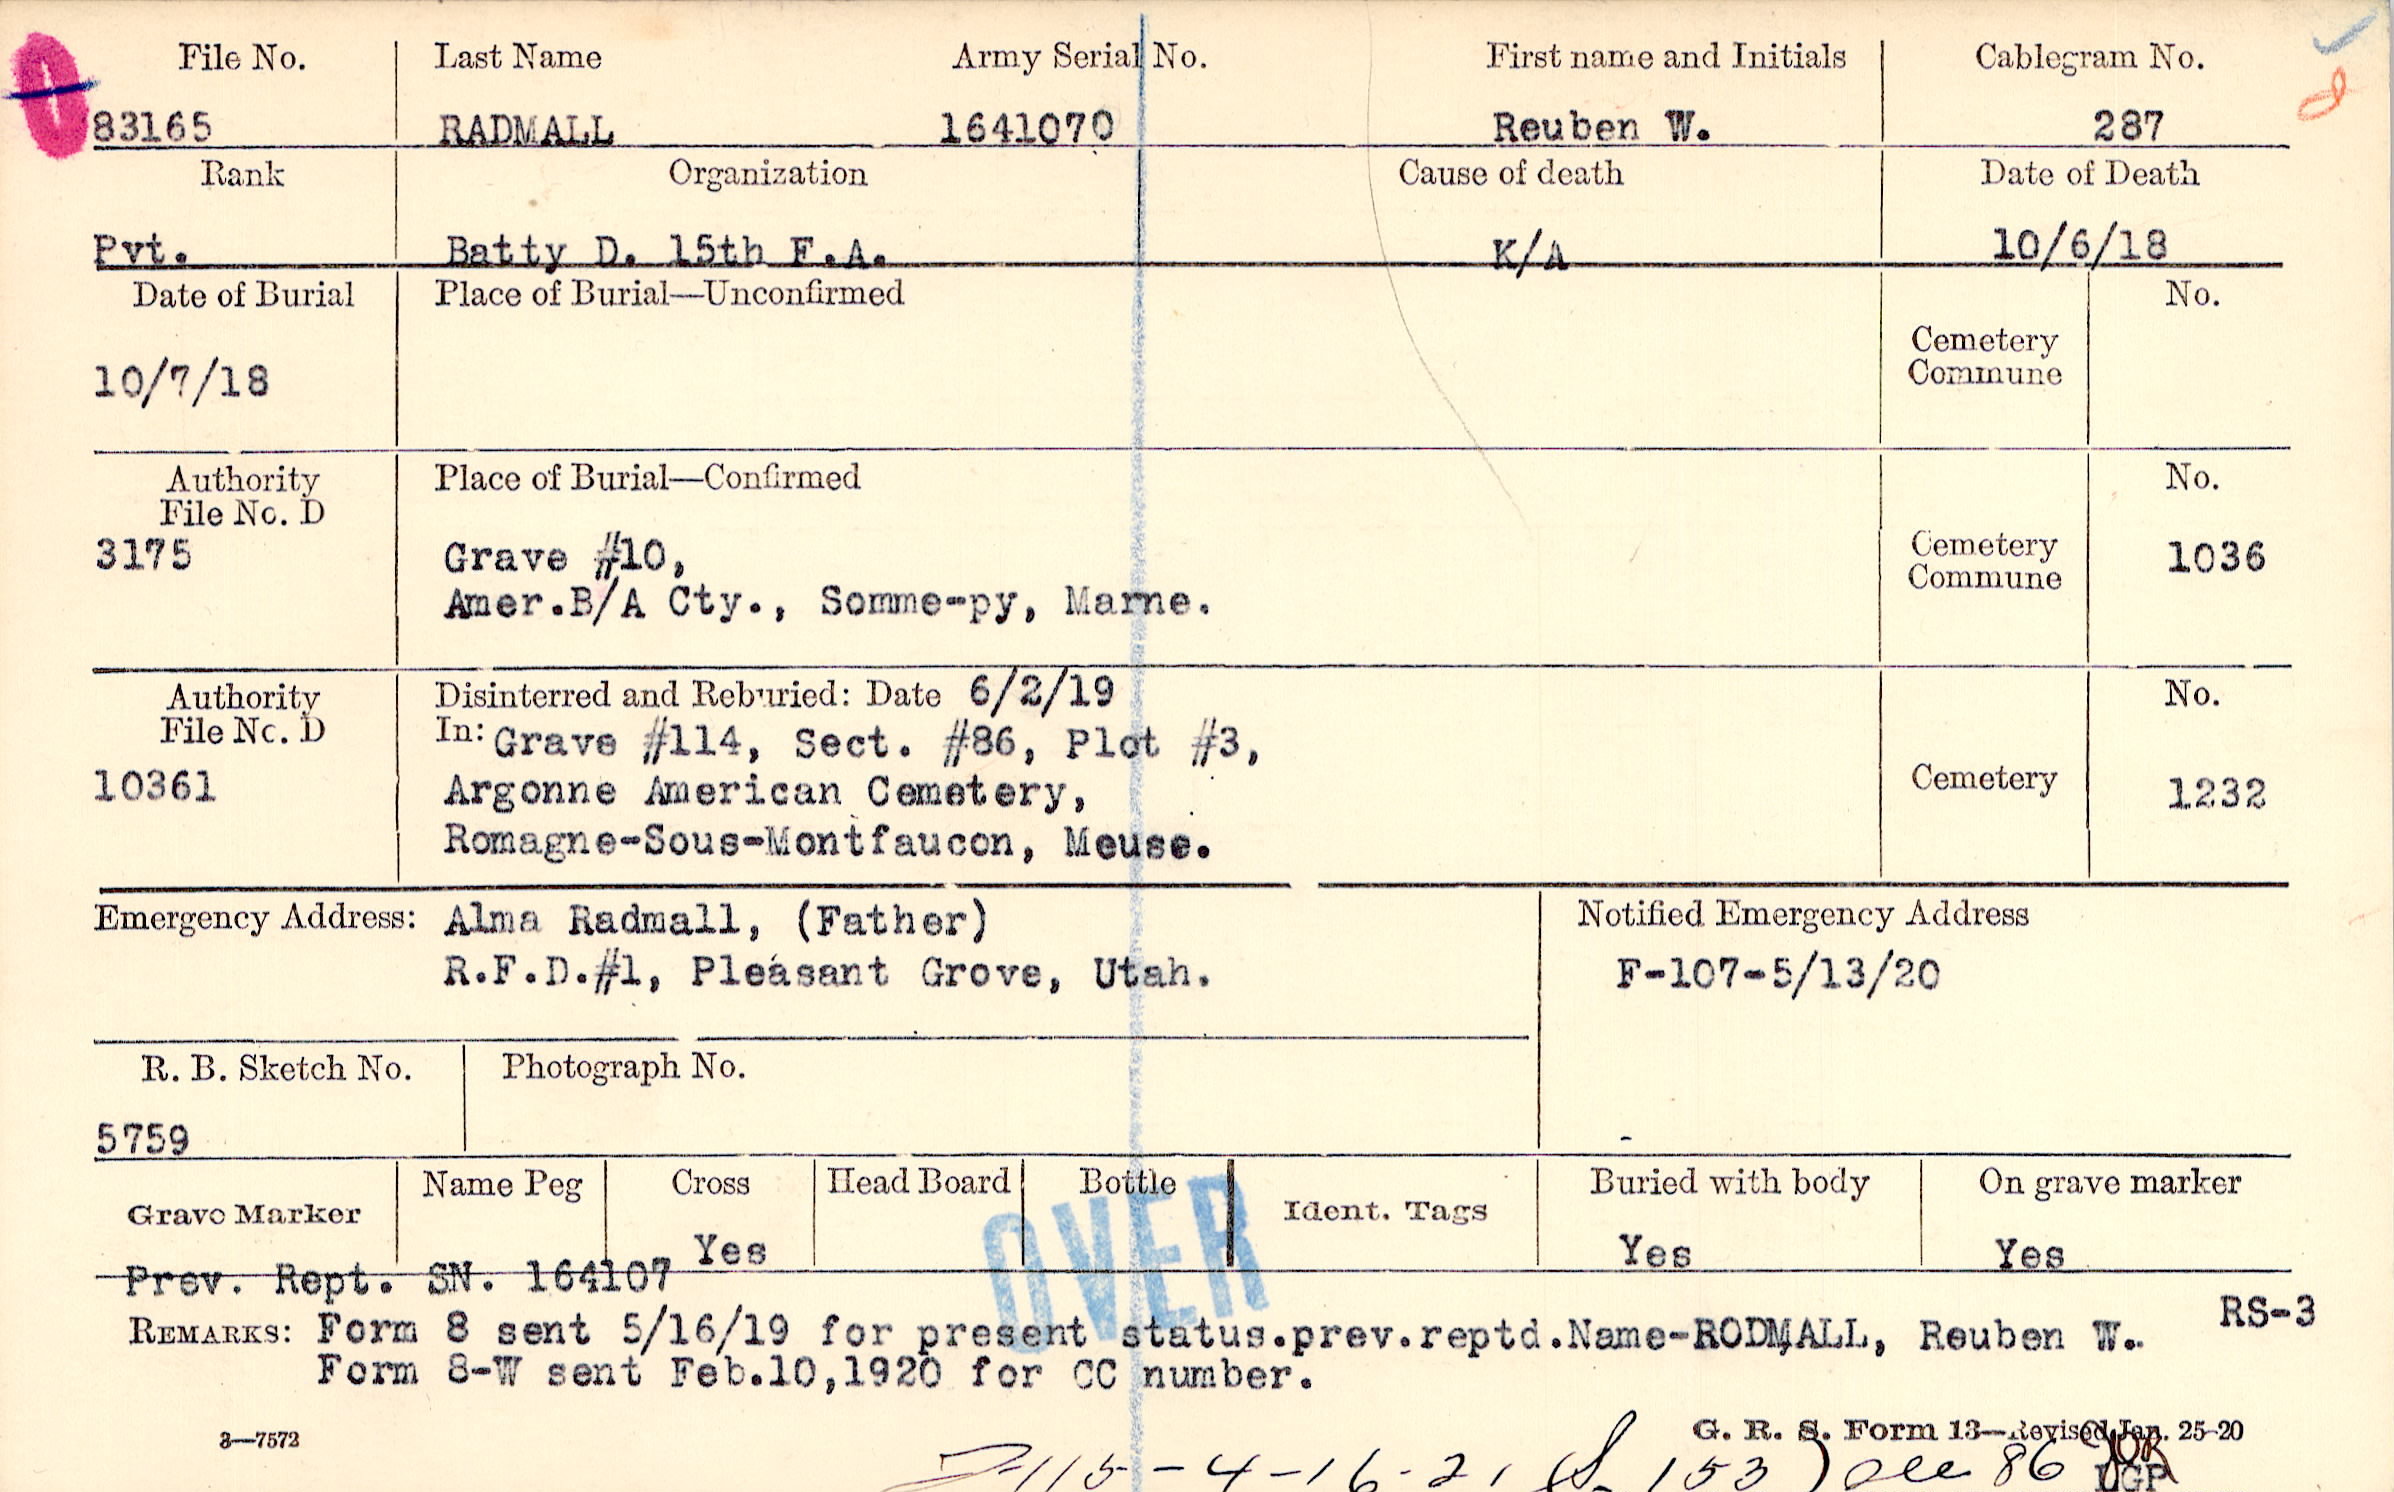 File No. Last Name Army Serial No. First name and Initials Cablegram No.
83165 RADMALL 1641070 Reuben W. 287
Rank Organization Cause of death Date of Death
Pvt. Batty D. 15th F.A. K/A 10/6/18
Date of Burial Place of Burial—Unconfirmed No.
Cemetery
Commune
10/7/18
Authority Place of Burial—Confirmed No.
File No. D
3175 Grave #10, Cemetery 1036
Commune
Amer.B/A Cty., Somme-py, Marne.
Authority Disinterred and Reburied: Date 6/2/19 No.
File No. D In: Grave #114, Sect. #86, Plot #3,
10361 Argonne American Cemetery, Cemetery 1232
Romagne-Sous-Montfaucon, Meuse.
Emergency Address: Alma Radmall, (Father) Notified Emergency Address
R.F.D.#1, Pleasant Grove, Utah. F-107-5/13/20
R. B. Sketch No. Photograph No.
5759
Name Peg Cross Head Board Bottle Buried with body On grave marker
Grave Marker Ident. Tags
Yes Yes Yes
OVER
Prev. Rept. SN. 164107
RS-3
REMARKS: Form 8 sent 5/16/19 for present status.prev.reptd.Name-RODMALL, Reuben W.
Form 8-W sent Feb.10,1920 for CC number.
3—7572 G. R. S. Form 13—Revised Jan. 25-20
115-4-16-21 153) 86